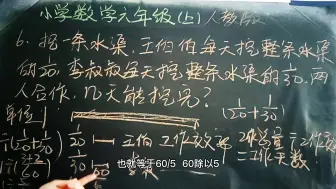 小学数学六年级(上)人教版
6.挖一条水渠,王伯伯每天挖整条水渠
的1/20,李叔叔每天挖整条水渠的1/30,两
人合作,几天能挖完?
单位1
1/20+1/30
1/20
王伯 工作效率
工作总量÷工作效
1/30
=工作天数
也就等于60/5 60除以5